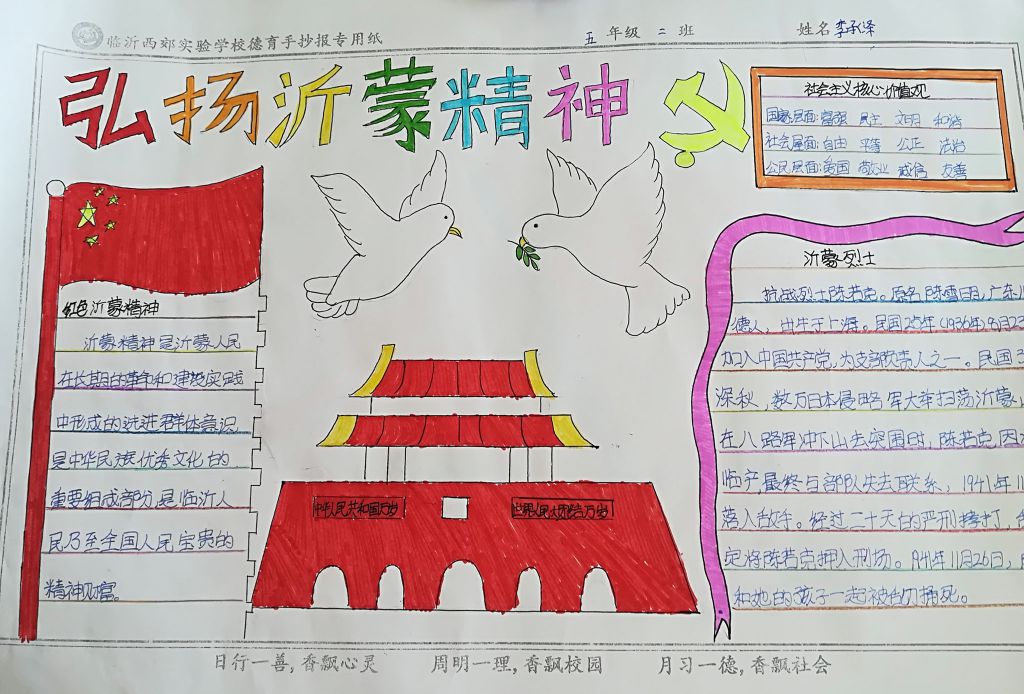 临沂西郊实验学校德育手抄报专用纸 五 年级 二 班 姓名 李承泽
弘扬沂蒙精神
社会主义核心价值观
国家层面:富强 民主 文明 和谐
社会层面:自由 平等 公正 法治
公民层面:爱国 敬业 诚信 友善
红色沂蒙精神
沂蒙精神是沂蒙人民
在长期的革命和建设实践
中形成的先进群体意识
是中华民族优秀文化的
重要组成部分,是临沂人
民乃至全国人民宝贵的
精神财富。
中华人民共和国万岁
世界人民大团结万岁
沂蒙烈士
抗战烈士陈若克。原名陈雪明,广东
德人,出生于上海。民国25年(1936年)8月
加入中国共产党,为支部负责人之一。民国
深秋,数万日本侵略军大举扫荡沂蒙
在八路军冲下山去突围时,陈若克因
临产,最终与部队失去联系,1941年11
落入敌手。经过二十天的严刑拷打,
定将陈若克押入刑场。1941年11月26日,
和她的孩子一起被刺刀捅死。
日行一善,香飘心灵 周明一理,香飘校园 月习一德,香飘社会